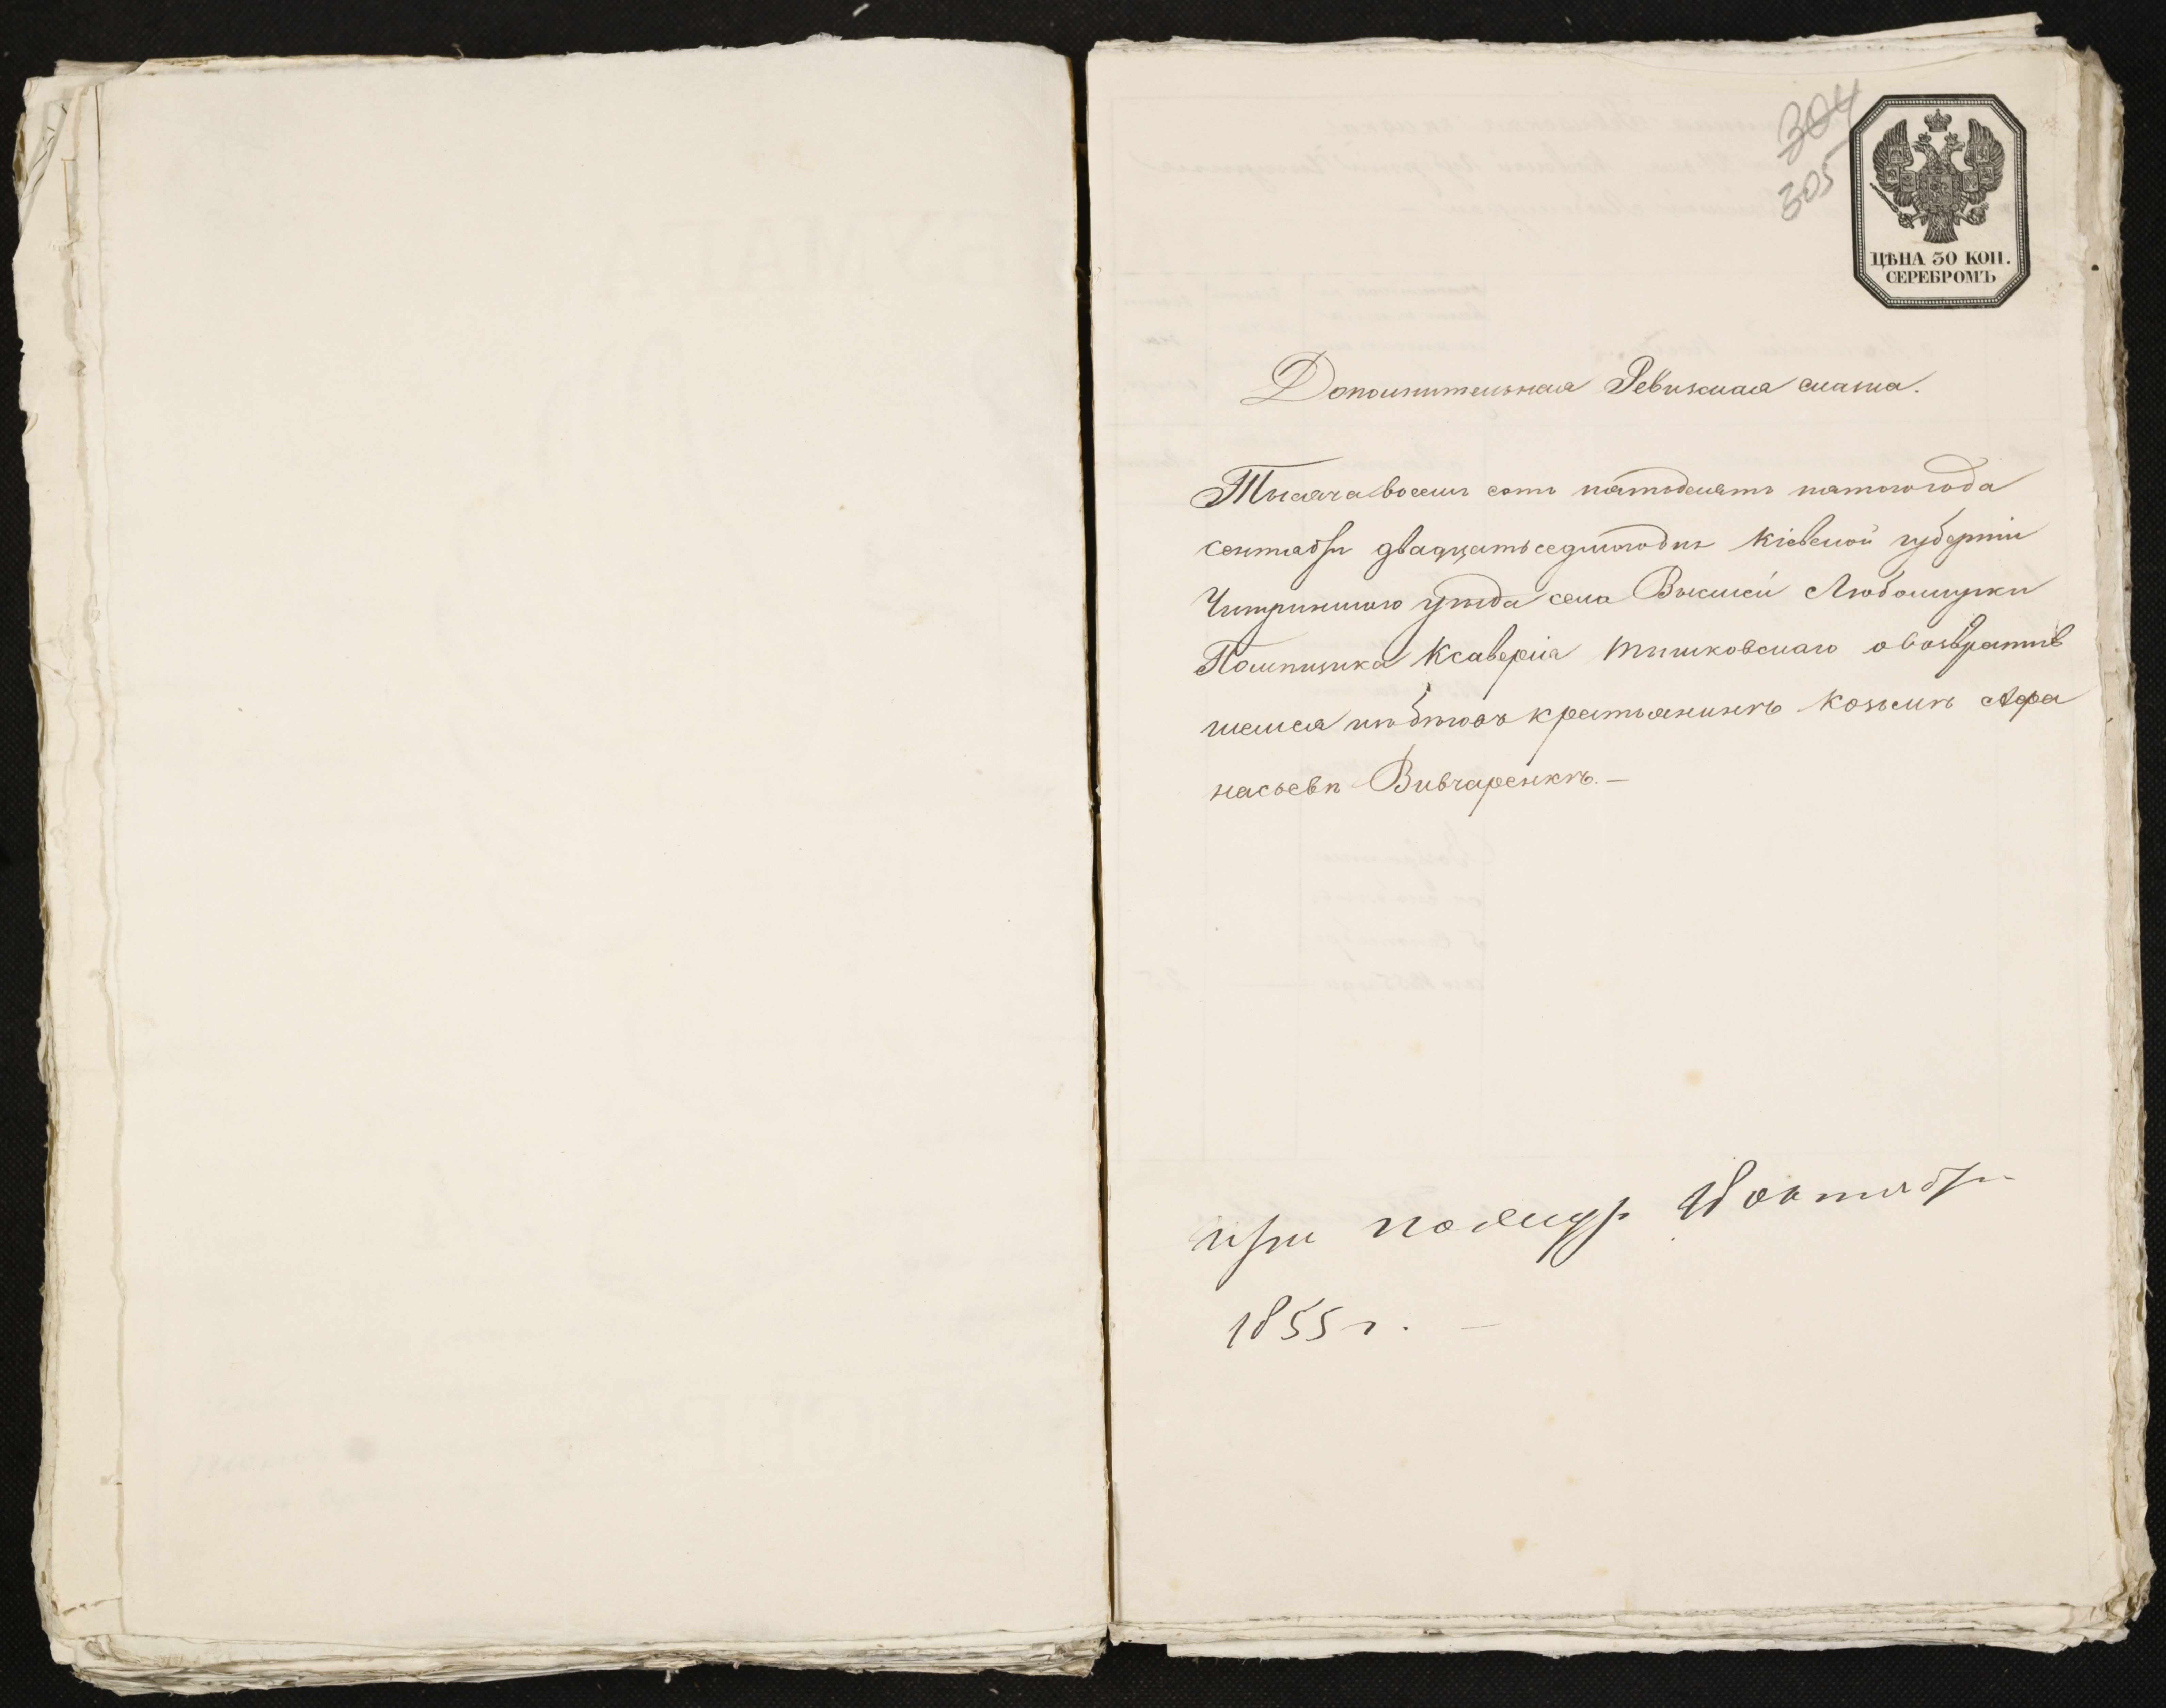 304
305
ЦѢНА 30 КОП.
СЕРЕБРОМЪ
Дополнительная Ревизская сказка.
Тысяча восемь сотъ пятьдесятъ пятого года
сентября двадцать седмого дня Кіевской губерніи
Чигиринского уѣзда села Высшей Любомирки
Помѣщика Ксаверія Тышковскаго о возвратив
шемся изъ бѣговъ крестьянинѣ Козьмѣ Афа
насьевѣ Вивчаренкѣ.—
при
октября
1855 г. —